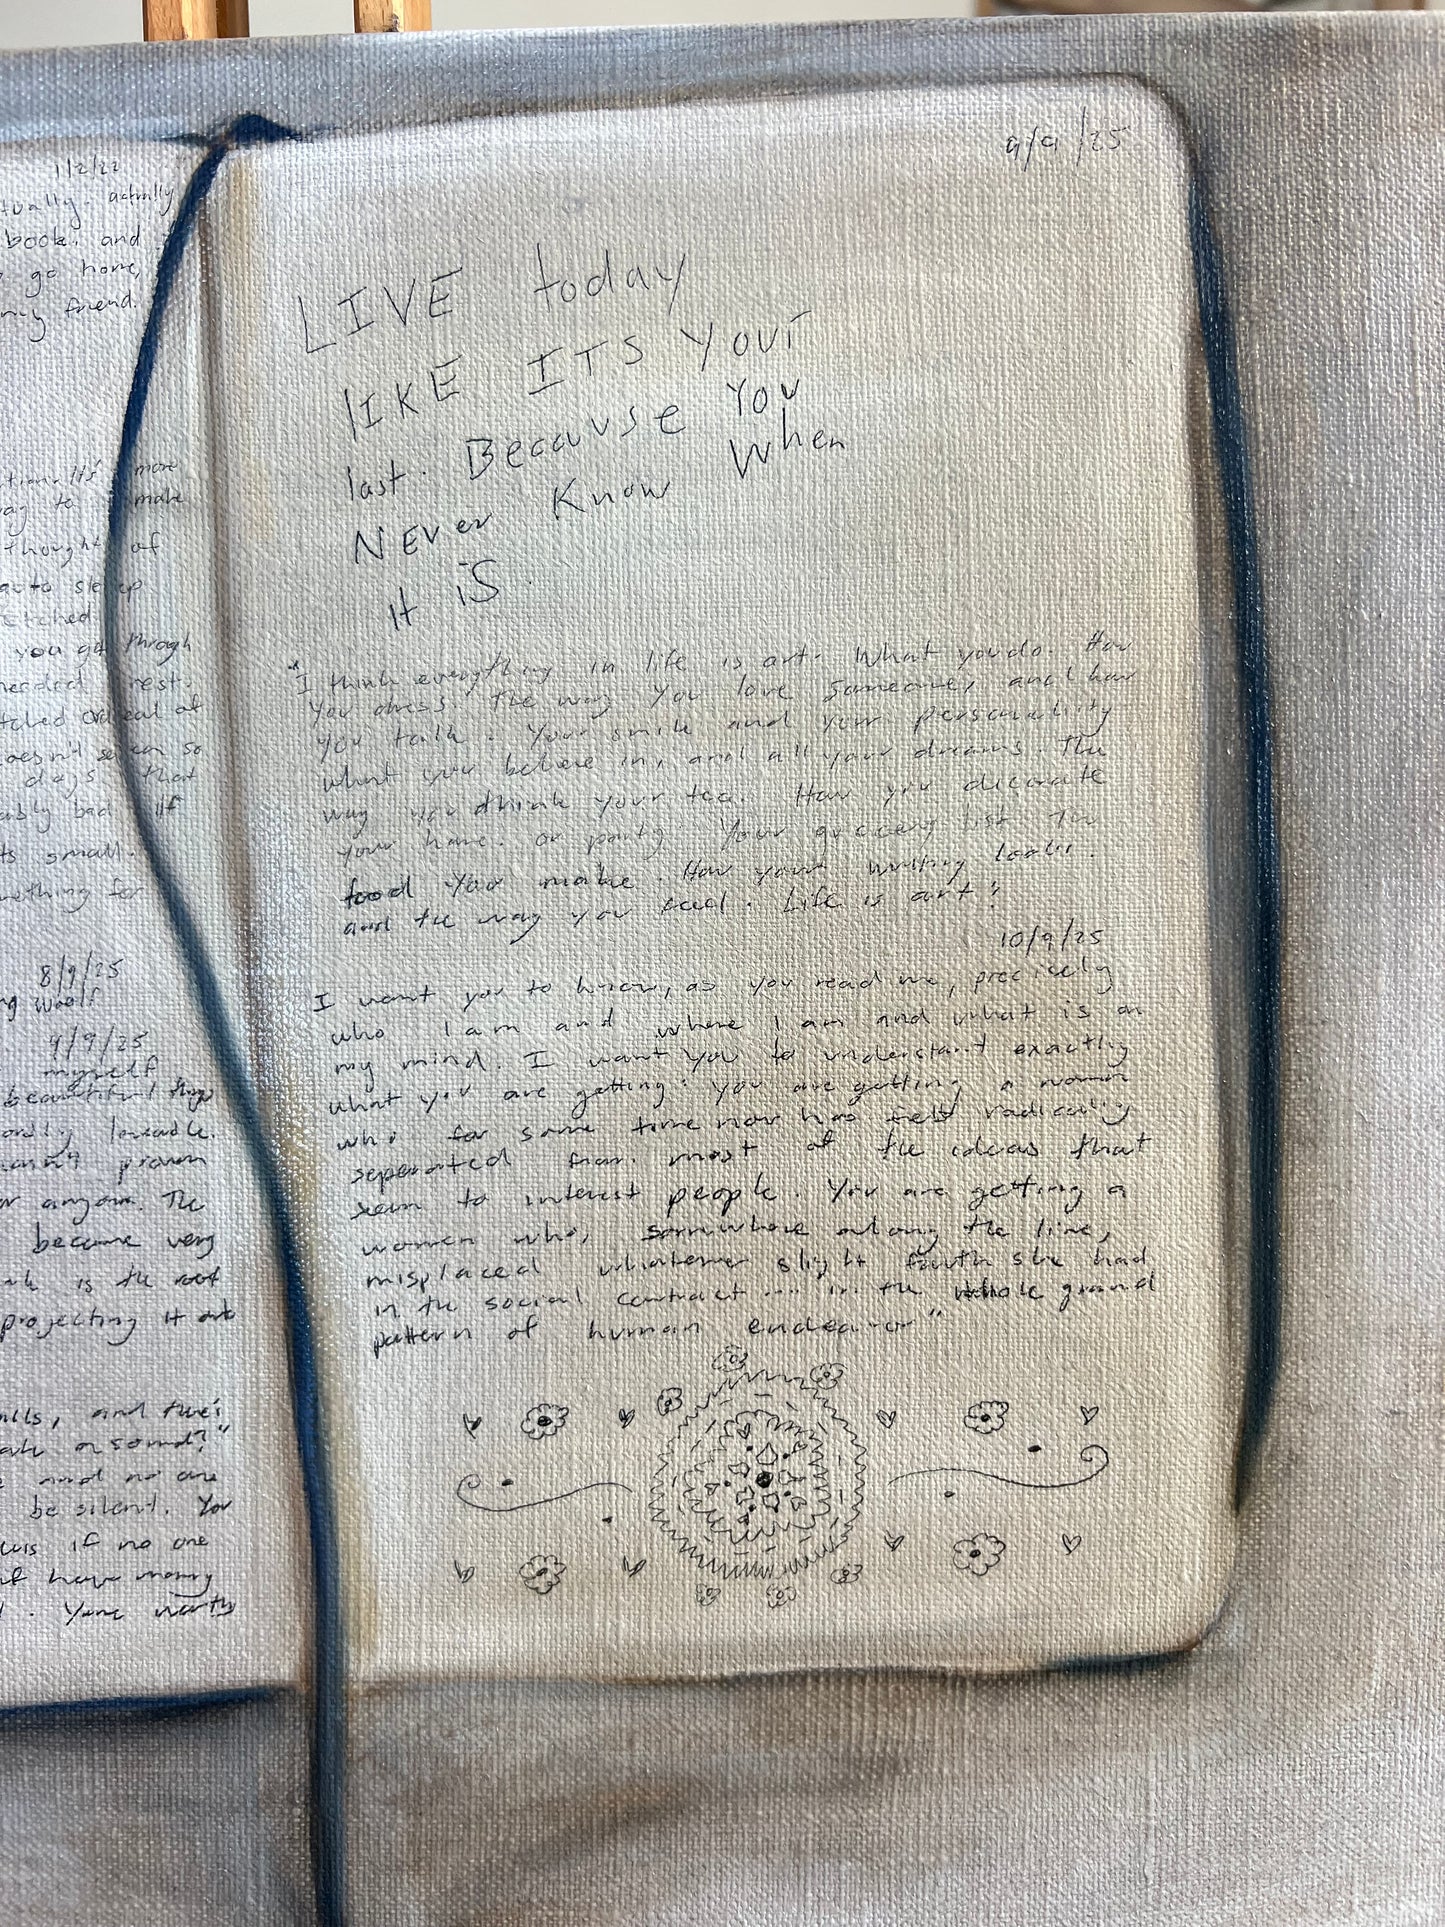 1/2/22
tually. actually
book. and
go home,
my friend.
tion. It's more
way to make
thought of
to sleep
etched
you get through
needed rest.
tched ordeal of
doesn't seem so
days that
ably bad. If
ts small.
mething for
8/9/25
ng Woolf
9/9/25
myself
beautiful things
ordly loveable.
proven
or anyone. The
become very
is the root
projecting it out
and there's
a sound?"
and no one
be silent. You
if no one
have many
. Your worth
9/9/25
LIVE today
lIKE ITS YOUr
last. Because YOU
NEVer Know When
It iS.
"I think everything in life is art. What you do. How
you dress. The way you love someone, and how
you talk. Your smile and your personality
what you believe in, and all your dreams. The
way you drink your tea. How you decorate
your home. or party. Your grocery list. The
food you make. How your writing looks.
and the way you feel. Life is art"
10/9/25
I want you to know, as you read me, precisely
who I am and where I am and what is on
my mind. I want you to understant exactly
what you are getting: you are getting a woman
who for some time now has felt radically
seperated from most of the ideas that
seem to interest people. You are getting a
women who, somewhere along the line,
misplaced whatever slight faith she had
in the social contract .... in the whole grand
pattern of human endeavor"